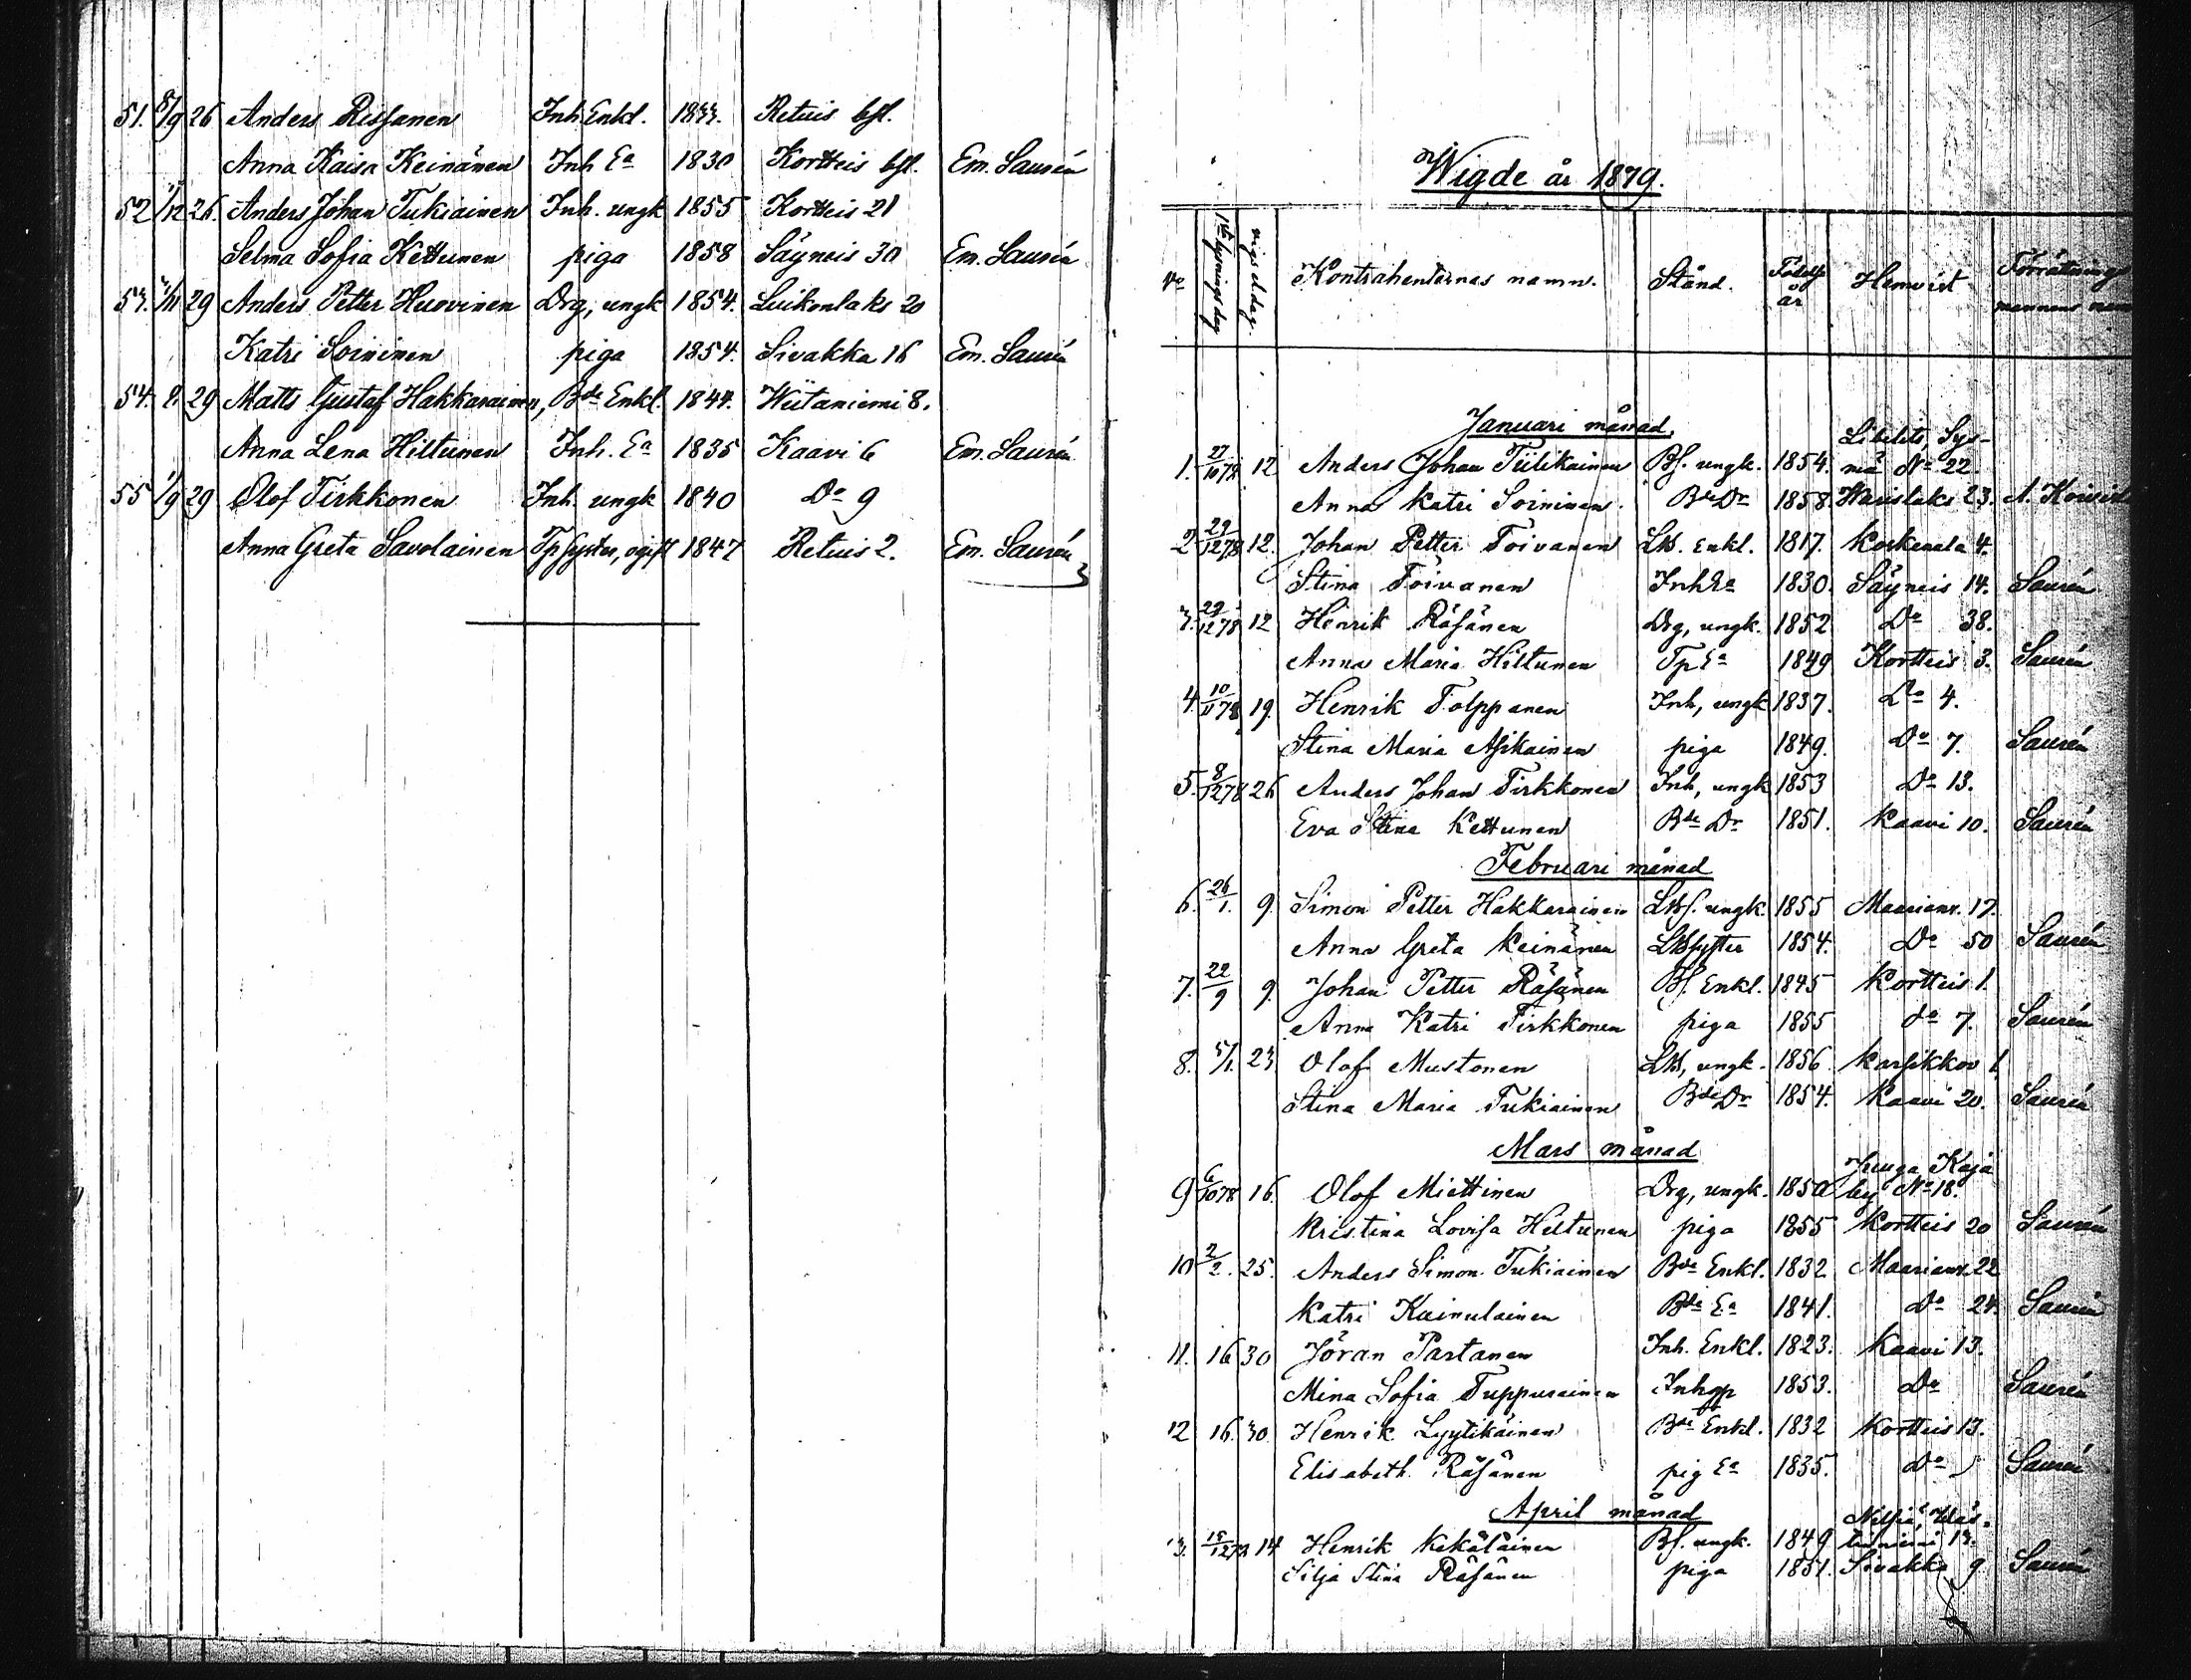 51. 8/9 26 Anders Rissanen Inh Enkl. 1833. Retuis bfl.
Anna Kaisa Keinänen Inh Ea 1830 Kortteis bfl. Em. Saurén
52 1/12 26. Anders Johan Tukiainen Inh. ungk 1855 Kortteis 21
Selma Sofia Kettunen piga 1858 Säyneis 30 Em. Saurén
53. 29 Anders Petter Huovinen Drg, ungk 1854. Luikonlaks 20
Katri Soininen piga 1854. Sivakka 16 Em. Saurén
54. 29 Matts Gustaf Hakkarainen, Bde Enkl. 1844. Wiitaniemi 8.
Anna Lena Hiltunen Inh. Ea 1835 Kaavi 6 Em. Saurén
55 1/9 29 Olof Tirkkonen Inh. ungk 1840 Do 9
Anna Greta Savolainen Tp syster, ogift 1847 Retuis 2. Em. Saurén
Wigde år 1879.
No 1sta lysningsdag vigseldag. Kontrahenternas namn. Stånd. Födelse år Hemvist Förrättnings mannens namn
Januari månad.
1. 27/10 78 12 Anders Johan Tiilikainen Bf. ungk. 1854. Libelits, Sysmä No 22.
Anna Katri Soininen Bde Dr 1858. Warislaks 23. A.
2 29/12 78 12. Johan Petter Toivanen LB. Enkl. 1817. Koskenala 4.
Stina Toivanen Inh Ea 1830. Säyneis 14. Saurén
3. 29/12 78 12 Henrik Räsänen Drg, ungk. 1852 Do 38.
Anna Maria Hiltunen Tp Ea 1849 Kortteis 3. Saurén
4. 10/11 78 19. Henrik Tolppanen Inh, ungk 1837. Do 4.
Stina Maria Asikainen piga 1849. Do 7. Saurén
5. 8/12 78 26 Anders Johan Tirkkonen Inh, ungk 1853 Do 13.
Eva Stina Kettunen Bde Dr 1851. Kaavi 10. Saurén
Februari månad
6. 26/1. 9. Simon Petter Hakkarainen LBf. ungk. 1855 Maarianv. 17.
Anna Greta Keinänen LBsyster 1854. Do 50 Saurén
7. 22/9 9. Johan Petter Räsänen Bf. Enkl. 1845 Kortteis 1.
Anna Katri Tirkkonen piga 1855 do 7. Saurén
8. 5/1. 23 Olof Mustonen LB, ungk. 1856 Karsikkov 1.
Stina Maria Tukiainen Bde Dr 1854. Kaavi 20. Saurén
Mars månad
9 6/10 78 16. Olof Miettinen Drg, ungk. 1850 Juuga Kajo by No 18.
Kristina Lovisa Hiltunen piga 1855 Kortteis 20 Saurén
10 2/2. 25. Anders Simon Tukiainen Bde Enkl. 1832 Maarianv. 22
Katri Kainulainen Bde Ea 1841. Do 24. Saurén
11. 16 30 Jöran Partanen Inh. Enkl. 1823. Kaavi 13.
Mina Sofia Tuppurainen 1853. Do Saurén
12 16. 30 Henrik Lyytikäinen Bde Enkl. 1832 Kortteis 13.
Elisabeth Räsänen pig Ea 1835. Do Saurén
April månad
13. 15/12 78 14 Henrik Kekäläinen Bf. ungk. 1849 Nilsiä
Silja Stina Räsänen piga 1851. Sivakka 9 Saurén